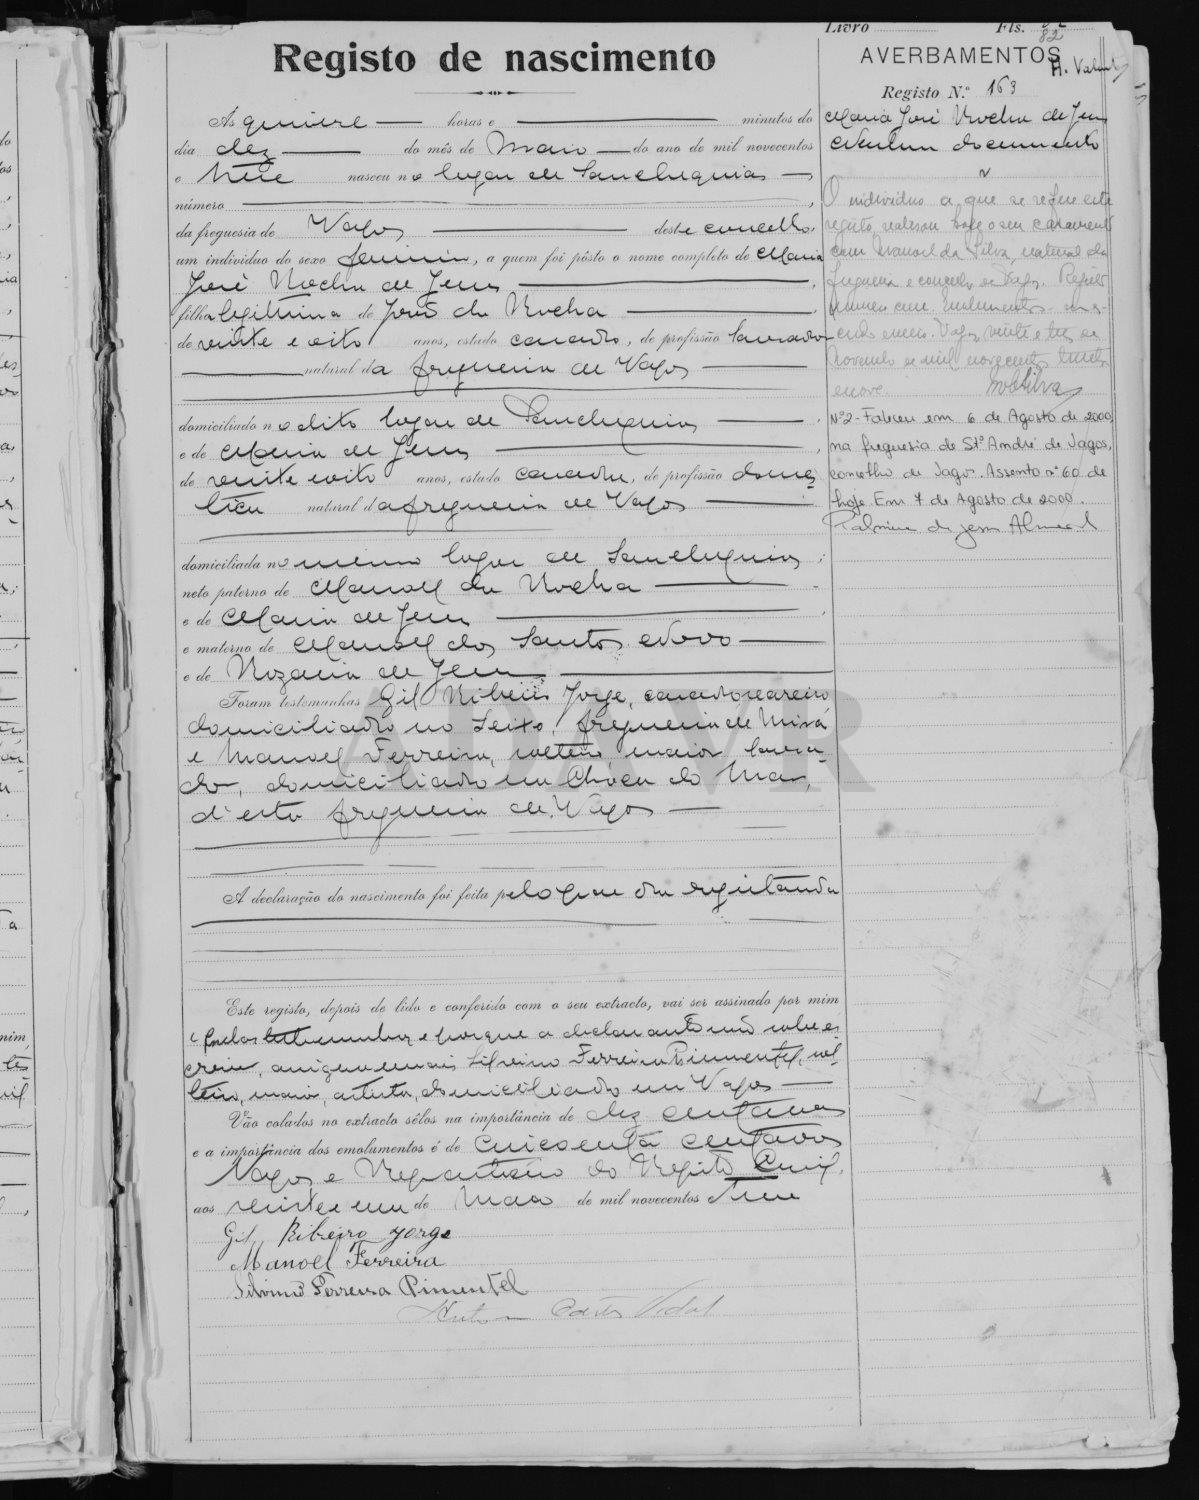 Livro Fls. 82
Registo de nascimento
AVERBAMENTOS
Registo N.º 163
Às quinze horas e minutos do
dia dez do mês de Maio do ano de mil novecentos
e treze nasceu no lugar de Sanchequias
número
da freguesia de Vagos deste concelho,
um individuo do sexo feminino, a quem foi pôsto o nome completo de Maria
José Rocha de Jesus
filha legitima de José da Rocha
de vinte e oito anos, estado casado, de profissão lavrador
natural da freguesia de Vagos
domiciliado no dito lugar de Sanchequias
e de Maria de Jesus
de vinte e oito anos, estado casada, de profissão domes
tica natural da freguesia de Vagos
domiciliada no mesmo lugar de Sanchequias;
neto paterno de Manoel da Rocha
e de Maria de Jesus
e materno de Manoel dos Santos Novo
e de Rozaria de Jesus
Foram testemunhas Gil Ribeiro Jorge, casado
domiciliado no Seixo, freguesia de Mira
e Manoel Ferreira, solteiro, maior, lavra-
dor, domiciliado na Chóca do Mar,
d'esta freguesia de Vagos
A declaração do nascimento foi feita pelo pae da registanda
Este registo, depois de lido e conferido com o seu extracto, vai ser assinado por mim
e pelas testemunhas e porque o declarante não sabe es
crever, assigna mais Silvino Ferreira Pimentel, sol
teiro, maior, artista, domiciliado em Vagos
Vão colados no extracto sêlos na importância de dez centavos
e a importância dos emolumentos é de cincoenta centavos
Vagos e Repartição do Registo Civil,
aos vinte e um de Maio de mil novecentos e treze
Gil Ribeiro Jorge
Manoel Ferreira
Silvino Ferreira Pimentel
Antonio Carlos Vidal
Maria José Rocha de Jesus
Nenhum documento
O individuo a que se refere este
registo realisou hoje o seu casamento
com Manoel da Silva, natural da
freguesia e concelho de Vagos. Registo
numero cem. Emolumentos
Vagos, vinte e tres de
Novembro de mil novecentos trinta
e nove. Silva
Nº2 - Faleceu em 6 de Agosto de 2000,
na freguesia de Stº André de Vagos,
concelho de Vagos. Assento nº 60 de
hoje. Em 7 de Agosto de 2000.
Palmira de Jesus